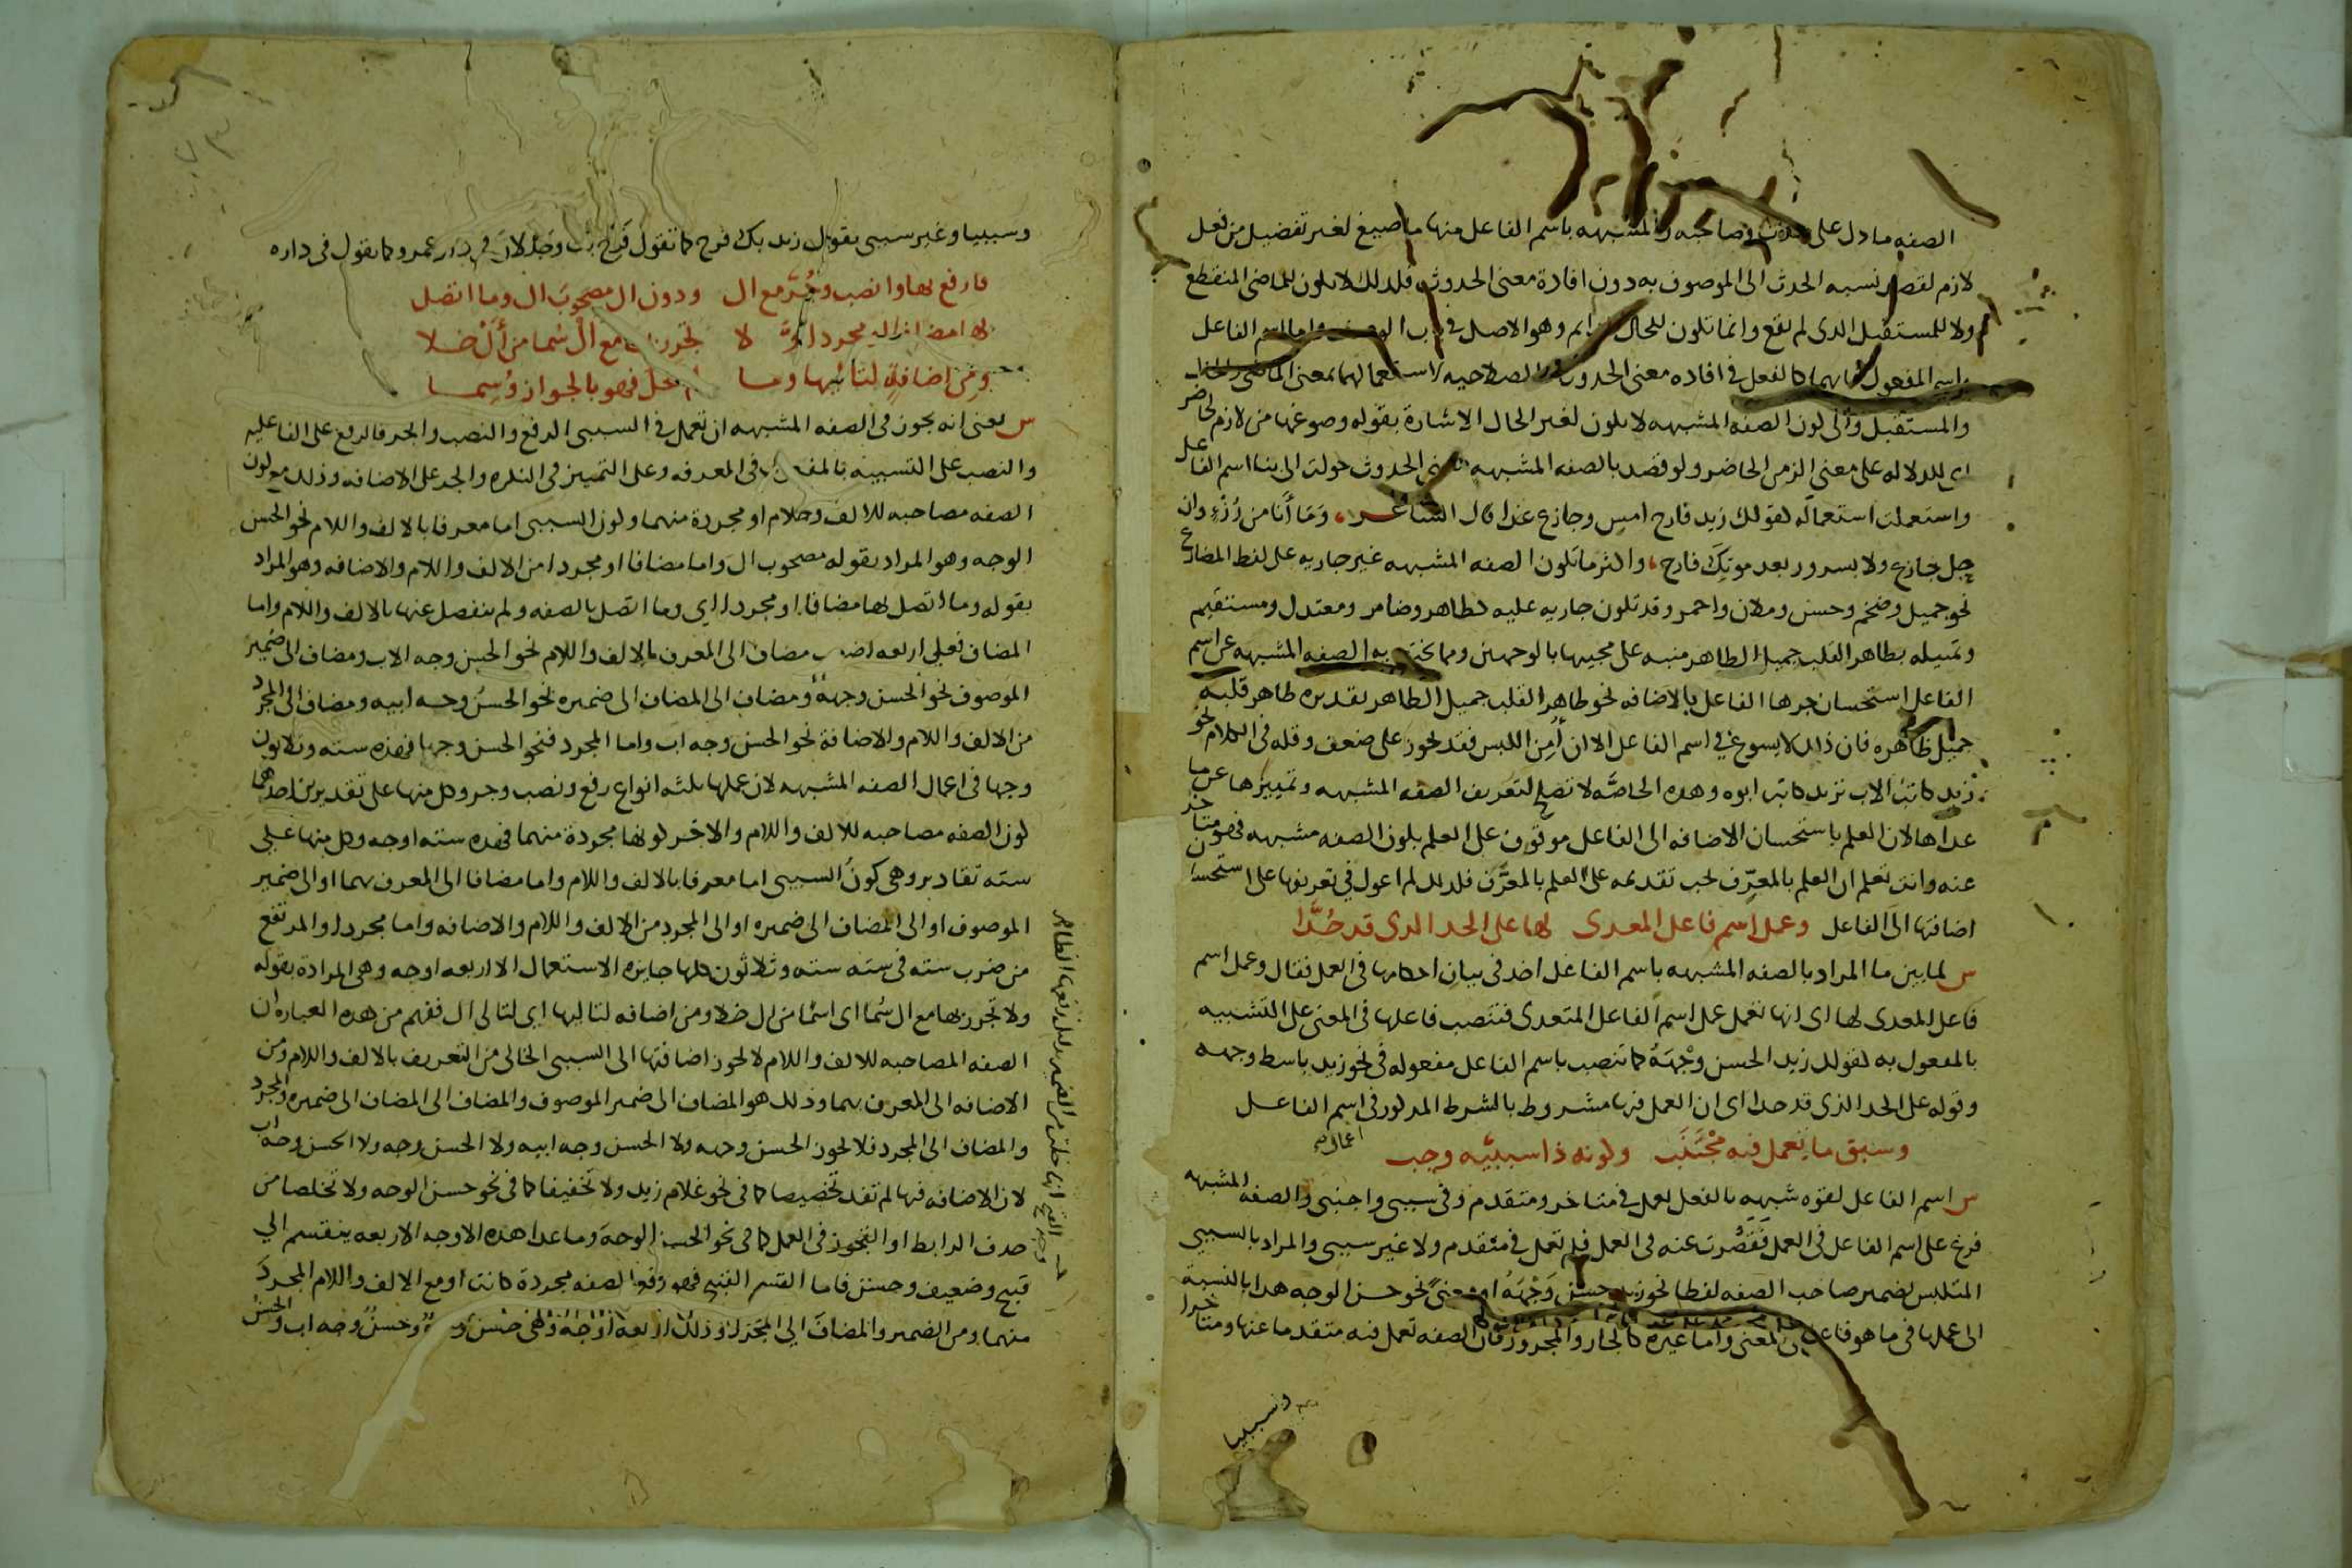 الصفه ما دل على حدث وصاحبه والمشبهه باسم الفاعل منها ما صيغ لغير تفضيل من فعل
لازم لقصد نسبه الحدث الى الموصوف به دون افادة معنى الحدوث فلذلك لا تكون للماضى المنقطع
ولا للمستقبل الذى لم يقع وانما تكون للحال الدايم وهو الاصل فى باب الوصف واما اسم الفاعل
واسم المفعول فانهما كالفعل فى افاده معنى الحدوث والصلاحيه لاستعمالهما بمعنى الماضى والحال
والمستقبل والى كون الصفه المشبهه لا تكون لغير الحال الاشارة بقوله وصوغها من لازم لحاضر
اى للدلاله على معنى الزمن الحاضر ولو قصد بالصفه المشبهه معنى الحدوث حولت الى بنا اسم الفاعل
واستعملت استعماله كقولك زيد فارح امس وجازع غدا قال الشاعر وَمَا أنَا من رُزْءٍ وان
جل جازع ولا بسرور بعد موتِكَ فارح، واكثر ما تكون الصفه المشبهه غير جاريه على لفظ المضارع
نحو جميل وضخم وحسن وملان واحمر وقد تكون جاريه عليه كطاهر وضامر ومعتدل ومستقيم
وتمثيله بطاهر القلب جميل الظاهر منبه على مجيها بالوجهين ومما يختص به الصفه المشبهه عن اسم
الفاعل استحسان جرها الفاعل بالاضافه نحو طاهر القلب جميل الظاهر تقديره طاهر قلبه
جميل ظاهره فان ذلك لا يسوغ فى اسم الفاعل الا ان أُمِن اللبس فقد يجوز على ضعف وقله فى الكلام نحو
زيد كاتب الاب تريد كاتب ابوه وهذه الخاصَّه لا تصلح لتعريف الصفه المشبهه وتمييزها عن ما
عداها لان العلم باستحسان الاضافه الى الفاعل موقوف على العلم بكون الصفه مشبهه فهو متاخر
عنه وانت تعلم ان العلم بالمعرِّف يجب تقدمه على العلم بالمعرَّف فلذلك لم اعول فى تعريفها على استحسان
اضافتها الى الفاعل وعمل اسم فاعل المعدى لها على الحد الذى قد حُدَّا
س لما بين ما المراد بالصفه المشبهه باسم الفاعل اخذ فى بيان احكامها فى العمل فقال وعمل اسم
فاعل المعدى لها اى انها تعمل عمل اسم الفاعل المتعدى فتنصب فاعلها فى المعنى على التشبيه
بالمفعول به كقولك زيد الحسن وجْهَهُ كما تنصب باسم الفاعل مفعوله فى نحو زيد باسط وجهه
وقوله على الحد الذى قد حدا اى ان العمل فيها مشروط بالشرط المذكور فى اسم الفاعل
وسبق ما تعمل فيه مجْتَنَب وكونه ذا سببيَّه وجب
س اسم الفاعل لقوه شبهه بالفعل يعمل فى متاخر ومتقدم وفى سببى واجنبى والصفه المشبهه
فرع على اسم الفاعل فى العمل فقصُرت عنه فى العمل فلم تعمل فى متقدم ولا غير سببى والمراد بالسببى
المتلبس بضمير صاحب الصفه لفظا نحو زيد حسن وَجْهَهُ او معنىً نحو حسن الوجه هذا بالنسبة
الى عملها فى ما هو فاعل فى المعنى واما غيره كالجار والمجرور فان الصفه تعمل فيه متقدما عنها ومتاخرا
وسببيا
وسببيا وغير سببى تقول زيد بك فرح كما تقول فرح بك وجذلان فى دار عمرو كما تقول فى داره
فارفع بها وانصب وجُرَّ مع ال ودون ال مصحوبَ ال وما اتصل
بها مضافا او مجردا ولا تجرر بها مع ال سُما من أَلْ خلا
ومن اضافةٍ لتاليها وما لم يخل فهو بالجواز وُسِما
س يعنى انه يجوز فى الصفه المشبهه ان تعمل فى السببى الرفع والنصب والجر فالرفع على الفاعليه
والنصب على التشبيه بالمفعول فى المعرفه وعلى التمييز فى النكره والجر على الاضافه وذلك مع كون
الصفه مصاحبه للالف واللام او مجردة منهما وكون السببى اما معرفا بالالف واللام نحو الحسن
الوجه وهو المراد بقوله مصحوب ال واما مضافا او مجردا من الالف واللام والاضافه وهو المراد
بقوله وما اتصل بها مضافا او مجردا اي وما اتصل بالصفه ولم ينفصل عنها بالالف واللام واما
المضاف فعلى اربعه اضرب مضاف الى المعرف بالالف واللام نحو الحسن وجه الاب ومضاف الى ضمير
الموصوف نحو الحسن وجهه ومضاف الى المضاف الى ضميره نحو الحسن وجه ابيه ومضاف الى المجرد
من الالف واللام والاضافة نحو الحسن وجه اب واما المجرد فنحو الحسن وجها فهذه سته وثلاثون
وجها فى اعمال الصفه المشبهه لان عملها ثلثه انواع رفع ونصب وجر وكل منها على تقديرين احدهما
كون الصفه مصاحبه للالف واللام والاخر كونها مجردة منهما فهذه سته اوجه وكل منها على
سته تقادير وهى كونُ السببى اما معرفا بالالف واللام واما مضافا الى المعرف بهما او الى ضمير
الموصوف او الى المضاف الى ضميره او الى المجرد من الالف واللام والاضافه واما مجردا والمرتفع
من ضرب سته فى سته سته وثلاثون كلها جايزه الاستعمال الا اربعه اوجه وهى المرادة بقوله
ولا تجرر بها مع ال سُما اى اسمًا من ال خلا ومن اضافه لتاليها اى لتالى ال ففهم من هذه العباره ان
الصفه المصاحبه للالف واللام لا يجوز اضافتها الى السببى الخالى من التعريف بالالف واللام ومن
الاضافه الى المعرف بهما وذلك هو المضاف الى ضمير الموصوف والمضاف الى المضاف الى ضميره والمجرد
والمضاف الى المجرد فلا يجوز الحسن وجهه ولا الحسن وجه ابيه ولا الحسن وجه ولا الحسن وجه اب
لان الاضافه فيها لم تفد تخصيصا كما فى نحو غلام زيد ولا تخفيفا كما فى نحو حسن الوجه ولا تخلصا من
حذف الرابط او التجوز فى العمل كما فى نحو الحسن الوجه وما عدا هذه الاوجه الاربعه ينقسم الى
قبيح وضعيف وحسن فاما القسم القبيح فهو رفع الصفه مجردة كانت او مع الالف واللام المجردَ
منهما ومن الضمير والمضاف الى المجرد وذلك اربعه اوجه وهى حسن وجه وحسنٌ وجه اب والحسن